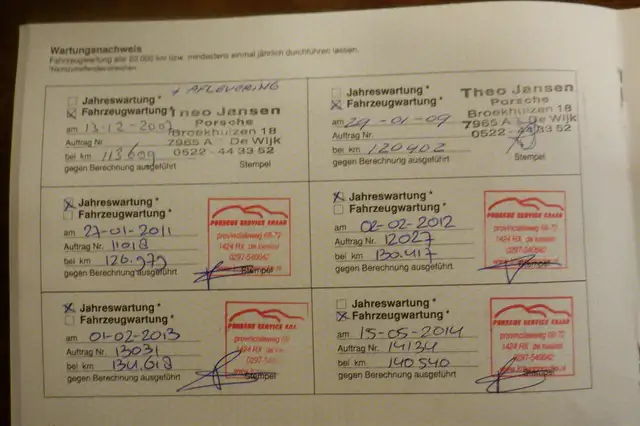 Wartungsnachweis
Fahrzeugwartung alle 20 000 km bzw. mindestens einmal jährlich durchführen lassen.
*Nichtzutreffendes streichen
+ AFLEVERING
Jahreswartung *
Fahrzeugwartung *
am 13-12-2007
Auftrag Nr
bei km 113.609
gegen Berechnung ausgeführt
Theo Jansen
Porsche
Broekhuizen 18
7965 A De Wijk
0522 - 44 33 52
Stempel
Jahreswartung *
Fahrzeugwartung *
am 29-01-09
Auftrag Nr.
bei km 120.402
gegen Berechnung ausgeführt
Theo Jansen
Porsche
Broekhuizen 18
7965 A De Wijk
0522 - 44 33 52
Stempel
Jahreswartung *
Fahrzeugwartung *
am 27-01-2011
Auftrag Nr. 11018
bei km 126.979
gegen Berechnung ausgeführt
PORSCHE SERVICE
provincialeweg 68-72
1424 RX de kwakel
0297-540642
Stempel
Jahreswartung *
Fahrzeugwartung *
am 02-02-2012
Auftrag Nr. 12027
bei km 130.417
gegen Berechnung ausgeführt
PORSCHE SERVICE
provincialeweg 68-72
1424 RX de kwakel
0297-540642
Stempel
Jahreswartung *
Fahrzeugwartung *
am 01-02-2013
Auftrag Nr. 13031
bei km 134.618
gegen Berechnung ausgeführt
PORSCHE SERVICE
provincialeweg
1424 RX de
Stempel
Jahreswartung *
Fahrzeugwartung *
am 15-05-2014
Auftrag Nr. 14134
bei km 140.540
gegen Berechnung ausgeführt
PORSCHE SERVICE
provincialeweg 68-72
1424 RX de kwakel
0297-540642
Stempel